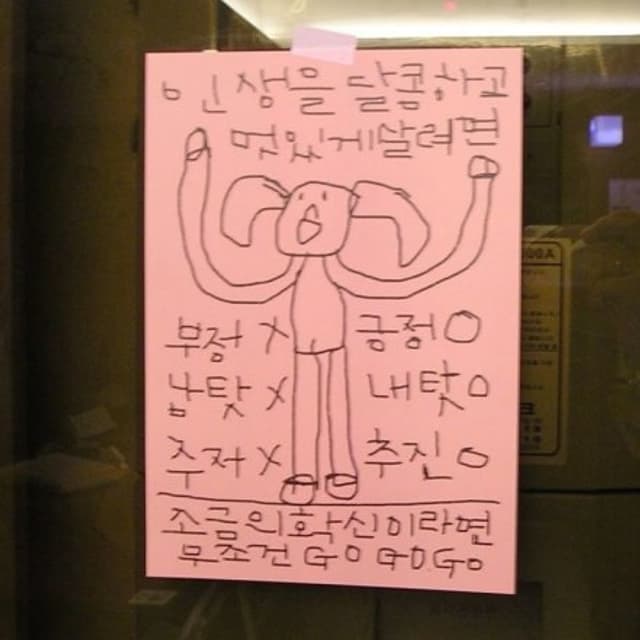 인생을 달콤하고
멋있게살려면
부정 X 긍정 O
남탓 X 내탓 O
주저 X 추진 O
조금의확신이라면
무조건 GO GO.GO
00A